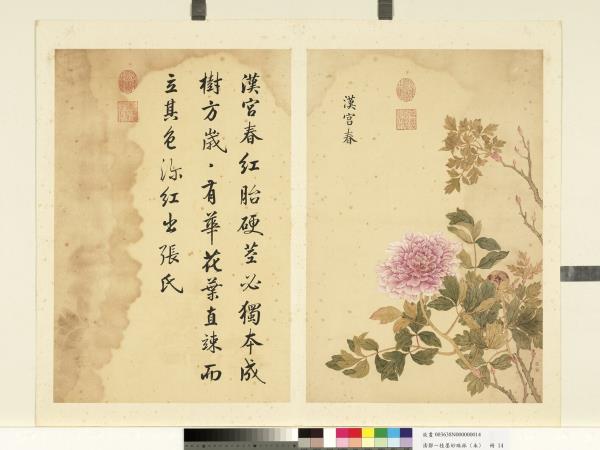 漢宮春
漢宮春紅胎硬莖必獨本成
樹方歲、有華花葉直竦而
立其色深紅出張氏
故畫 003638N000000014
清鄒一桂墨妙珠林（未） 冊 14